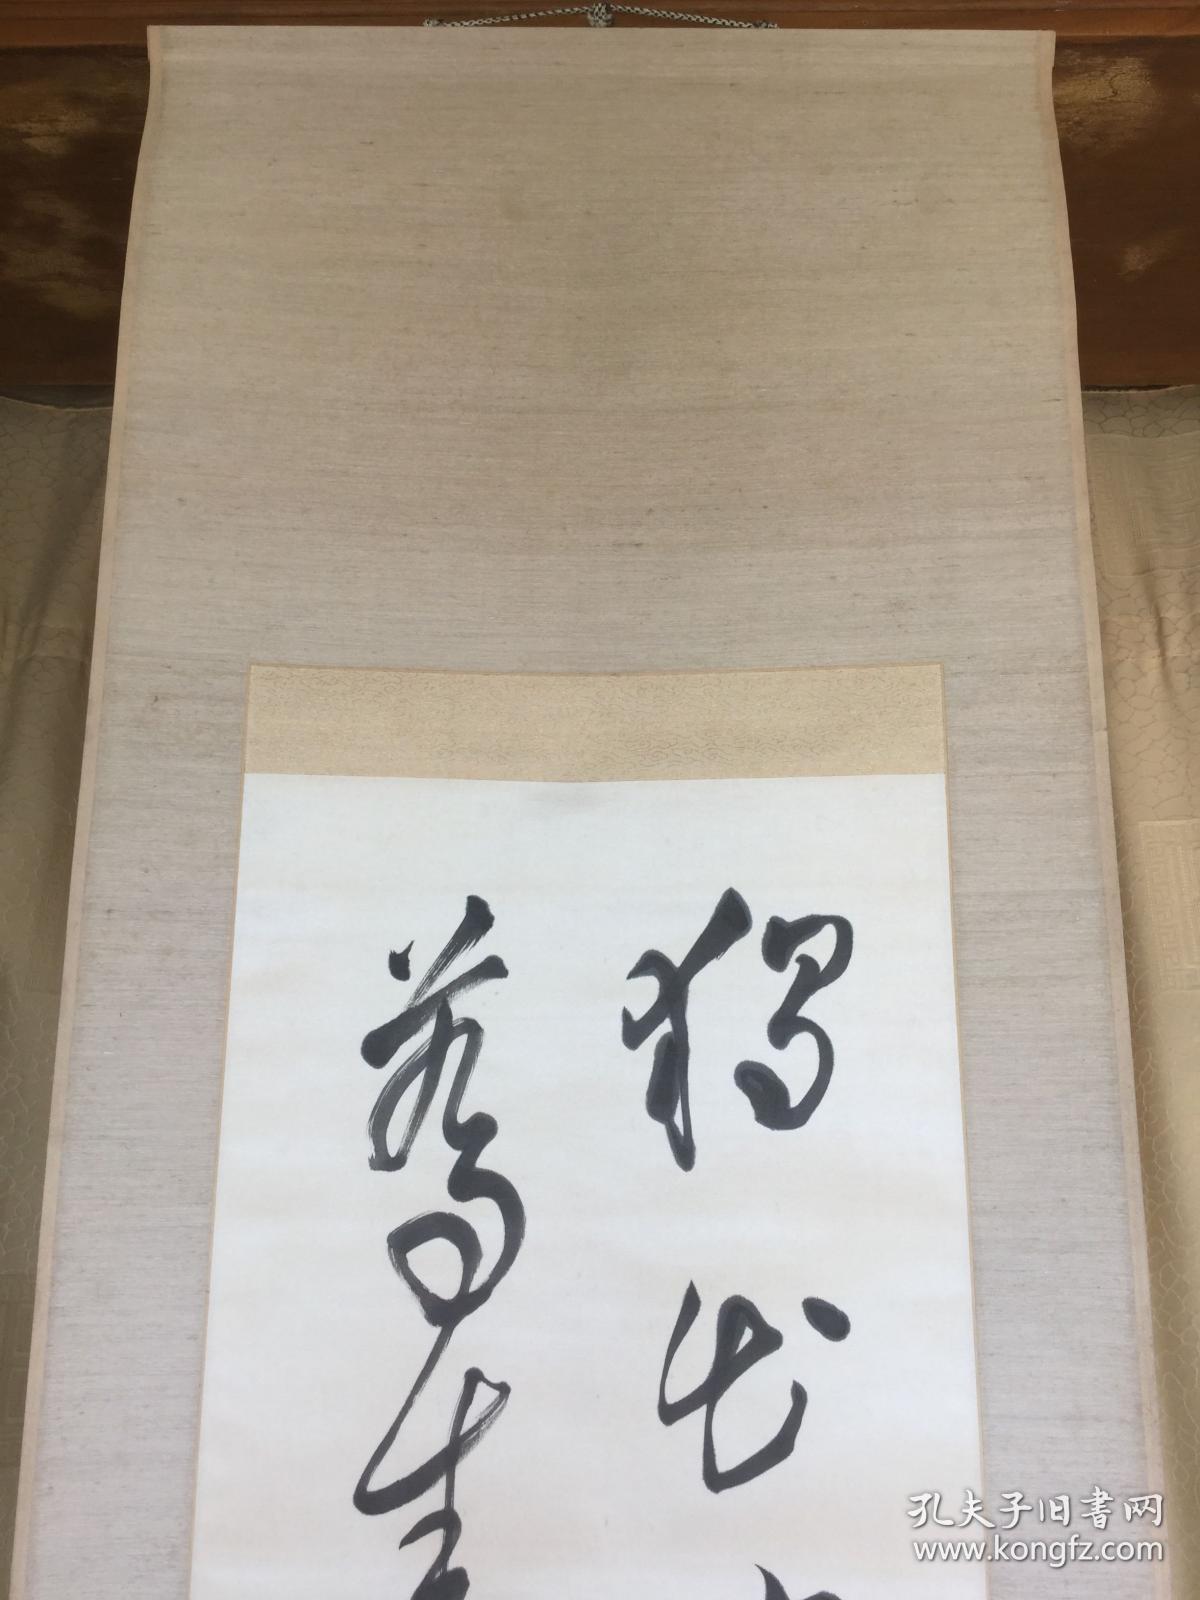 獨出
蕎麥
孔夫子旧書网
www.kongfz.com